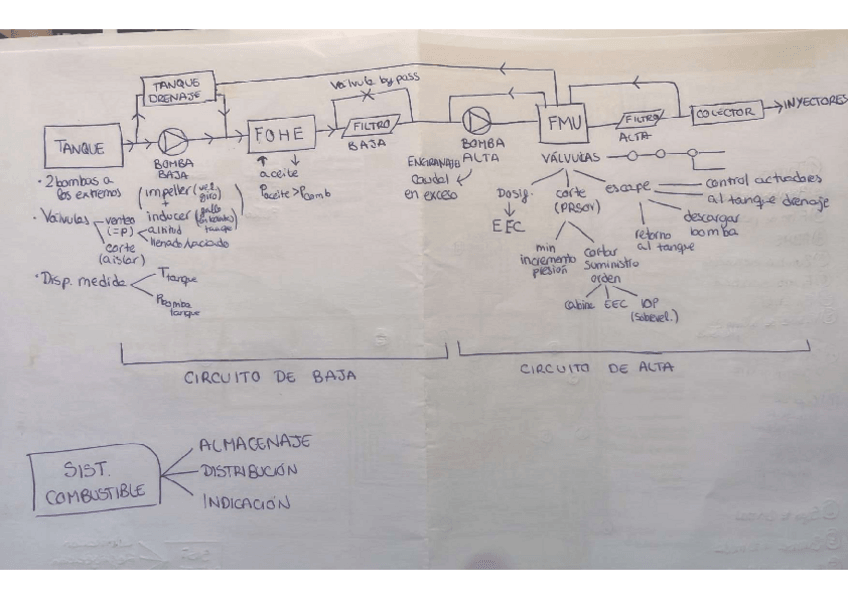 TANQUE
DRENAJE
Valvula bypass
TANQUE
BOMBA
BAJA
FOHE
FILTRO
BAJA
BOMBA
ALTA
FMU
FILTRO
ALTA
COLECTOR
INYECTORES
· 2 bombas a
los extremos
impeller (vel.
giro)
+
inducer
aceite
Paceite > Pcomb
ENGRANAJE
caudal
en exceso
· Válvulas
venteo
(=P)
altitud
llenado/vaciado
corte
(aislar)
· Disp. medida
Ttanque
Pbomba
tanque
VÁLVULAS
Dosig.
EEC
corte
(PRSOV)
min
incremento
presión
cortar
suministro
orden
cabina
EEC
IOP
escape
control actuadores
al tanque drenaje
descargar
bomba
retorno
al tanque
CIRCUITO DE BAJA
CIRCUITO DE ALTA
SIST.
COMBUSTIBLE
ALMACENAJE
DISTRIBUCIÓN
INDICACIÓN